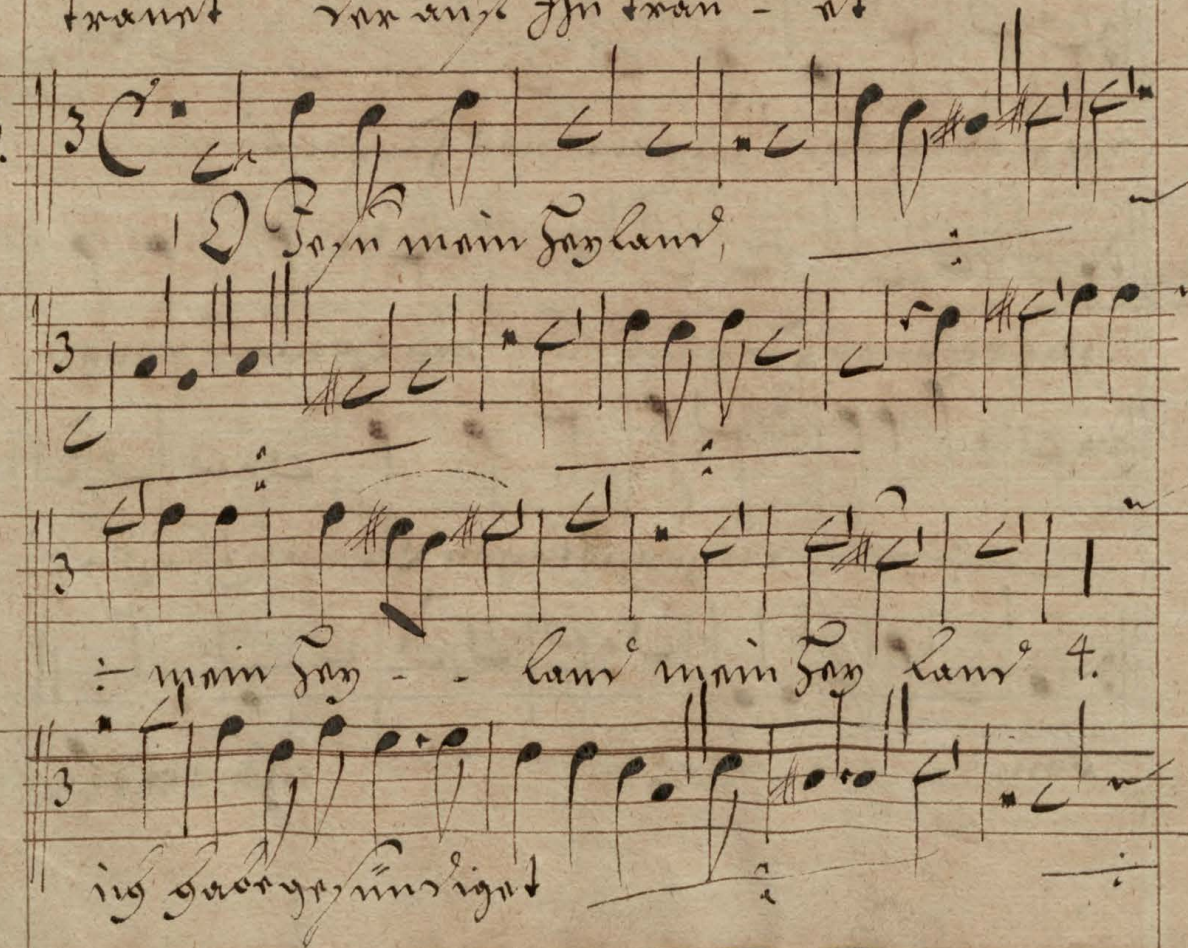 trauet der auf Ihn trau - et
O Jesu mein Heyland,
÷ mein Hey - - land mein Hey land 4.
ich habe gesündiget